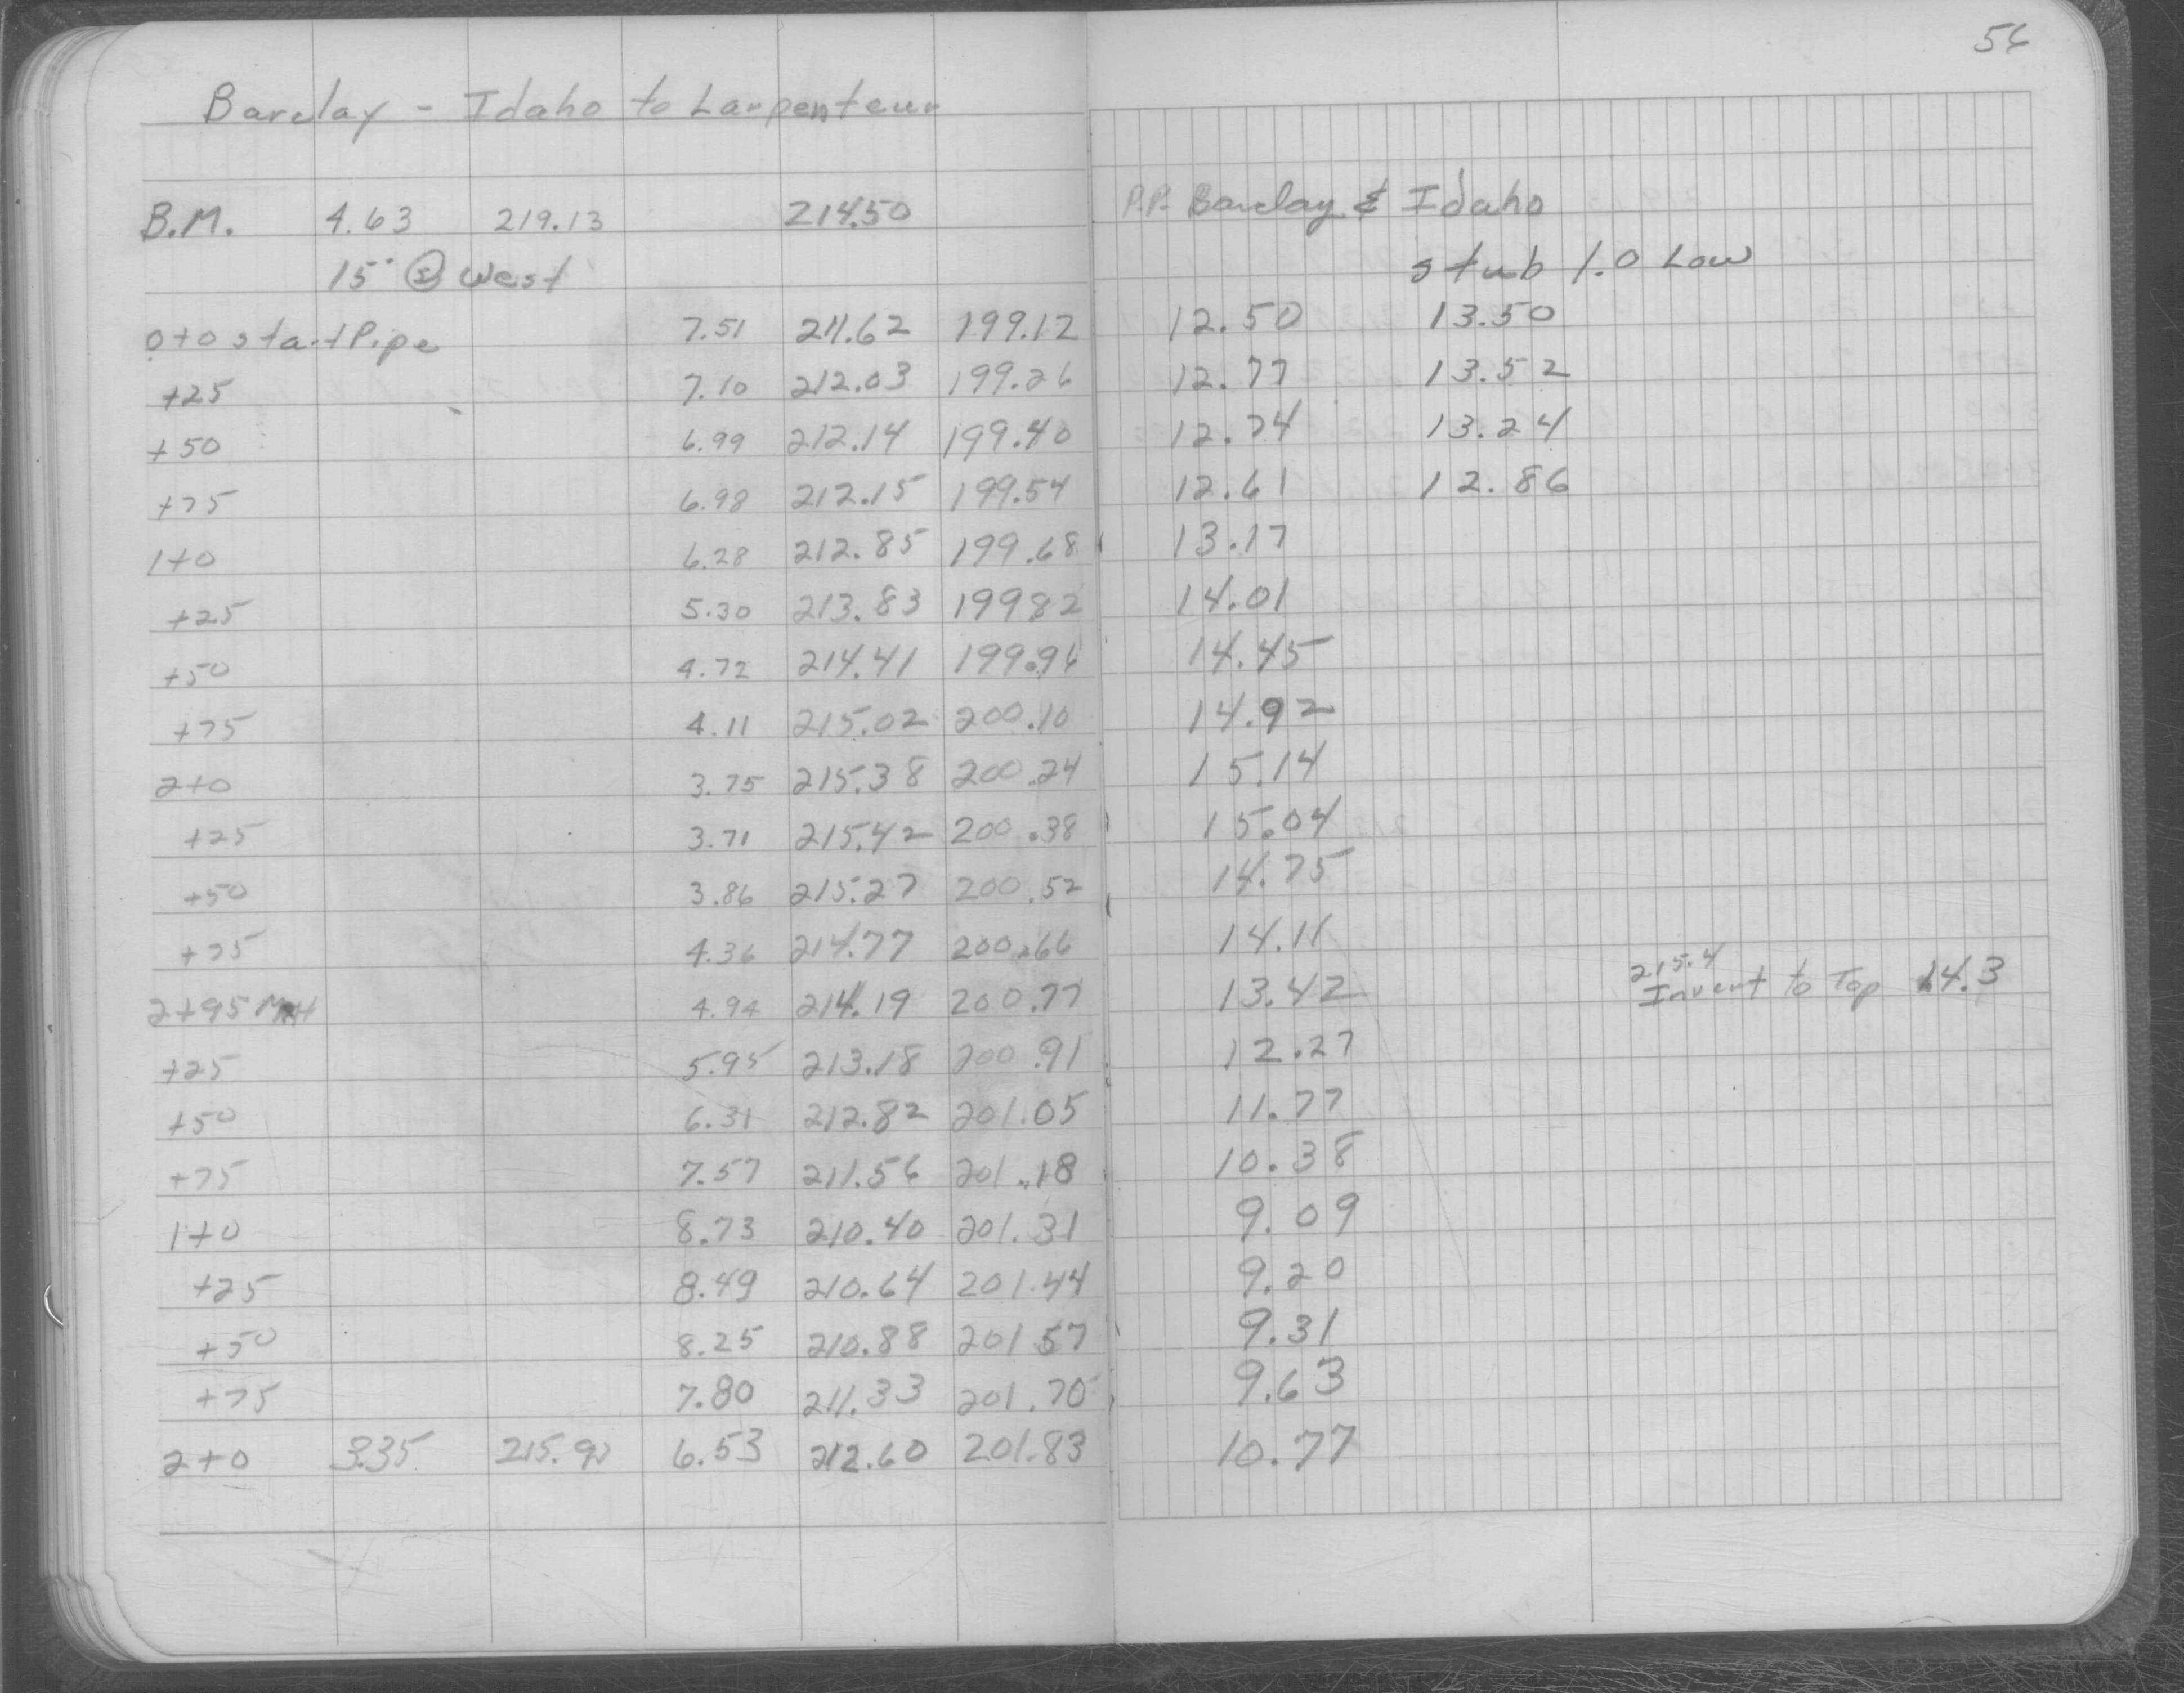 56
Barclay - Idaho to Larpenteur
B.M. 4.63 219.13 214.50 P.P. Barclay & Idaho
15" Ⓘ West stub 1.0 Low
0+0 start Pipe 7.51 211.62 199.12 12.50 13.50
+25 7.10 212.03 199.26 12.77 13.52
+50 6.99 212.14 199.40 12.74 13.24
+75 6.98 212.15 199.54 12.61 12.86
1+0 6.28 212.85 199.68 13.17
+25 5.30 213.83 199.82 14.01
+50 4.72 214.41 199.96 14.45
+75 4.11 215.02 200.10 14.92
2+0 3.75 215.38 200.24 15.14
+25 3.71 215.42 200.38 15.04
+50 3.86 215.27 200.52 14.75
+75 4.36 214.77 200.66 14.11
215.4
2+95 MH 4.94 214.19 200.77 13.42 Invert to Top 14.3
+25 5.95 213.18 200.91 12.27
+50 6.31 212.82 201.05 11.77
+75 7.57 211.56 201.18 10.38
1+0 8.73 210.40 201.31 9.09
+25 8.49 210.64 201.44 9.20
+50 8.25 210.88 201.57 9.31
+75 7.80 211.33 201.70 9.63
2+0 3.35 6.53 212.60 201.83 10.77